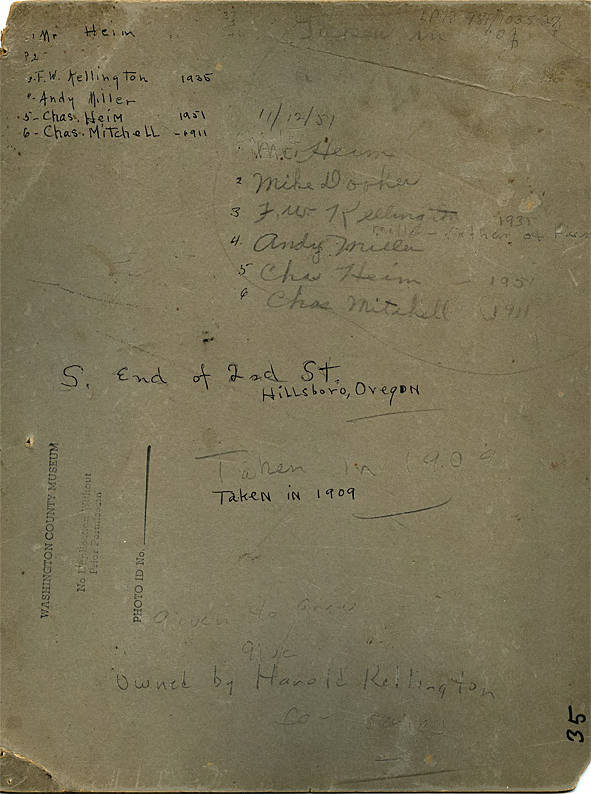 1 Mr Heim
P.2
3-F.W. Kellington 1935
4-Andy Miller
5-Chas. Heim 1951
6-Chas. Mitchell -1911
Taken in
11/12/51
Mr. Heim
2 Mike Dooher
3 F.W. Kellington 1935
4. Andy Miller
5 Chas Heim - 1951
6 Chas Mitchell 1911
S. End of 2nd St.
Hillsboro, Oregon
Taken in 1909
Taken in 1909
WASHINGTON COUNTY MUSEUM
No Duplication Without
Prior Permission
PHOTO ID No.
Given to
Owned by Harold Kellington
Co-
35